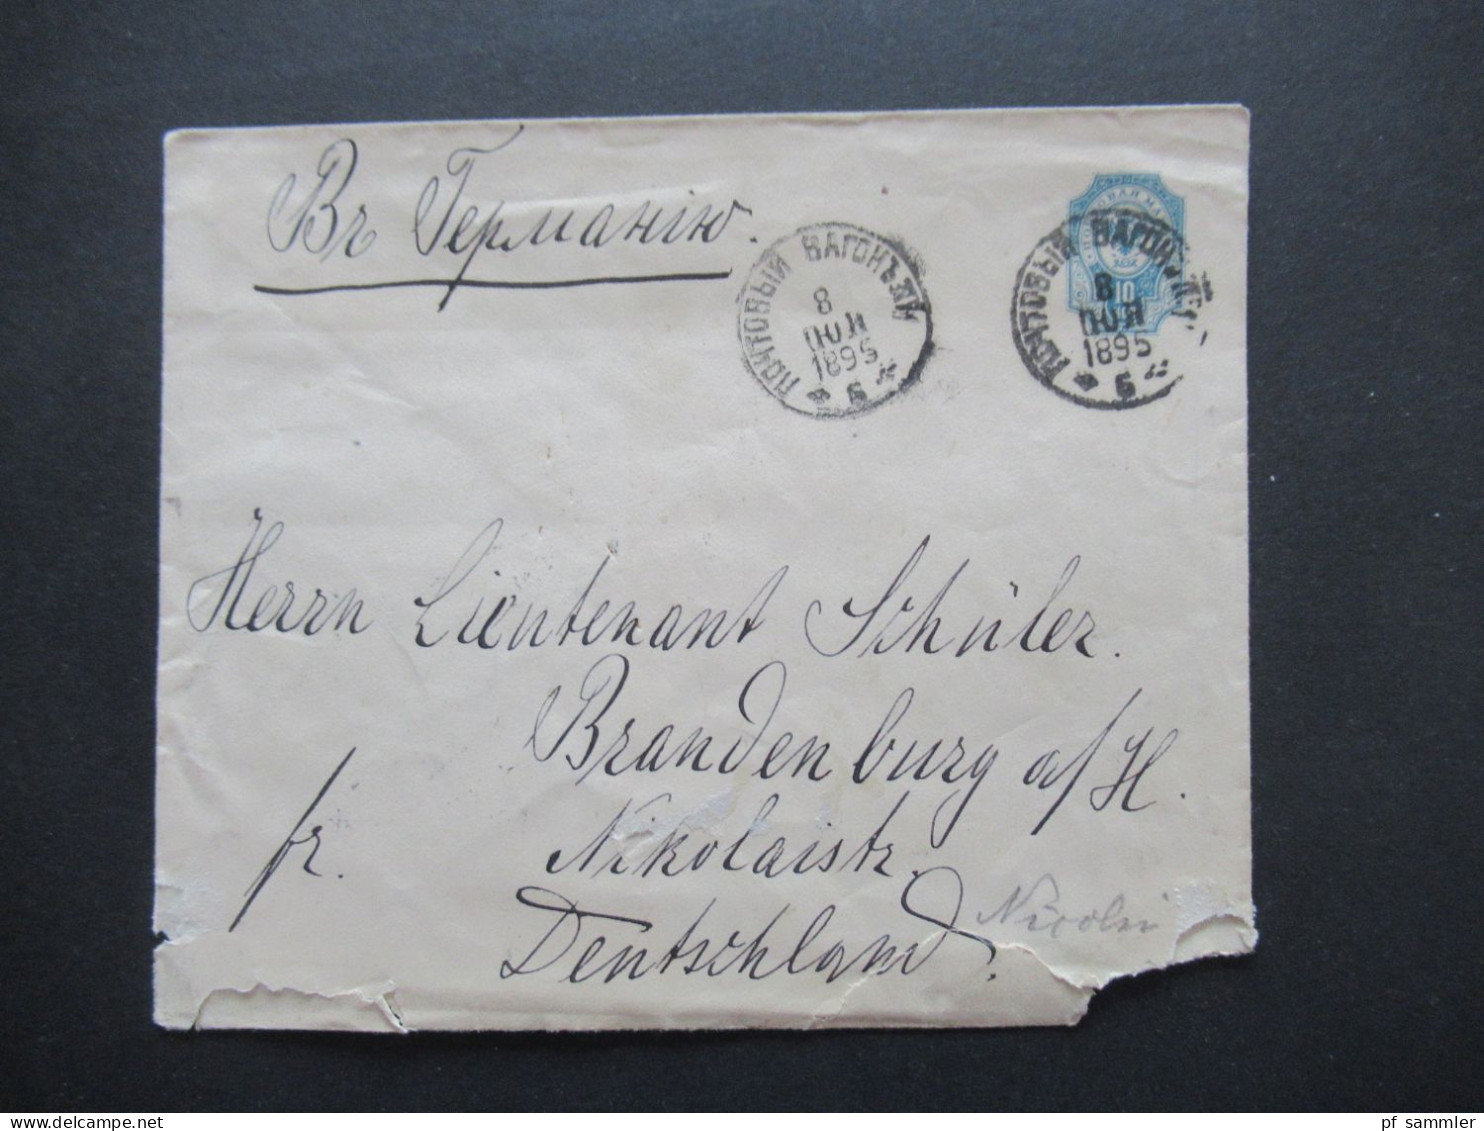 Въ Германію.
ПОЧТОВЫЙ ВАГОНЪ
8
1895
ПОЧТОВЫЙ ВАГОНЪ
8
1895
10
Herrn Lieutenant Schüler.
Brandenburg a/H.
fr. Nikolaistr.
Deutschland.
Nicolai
pf sammler